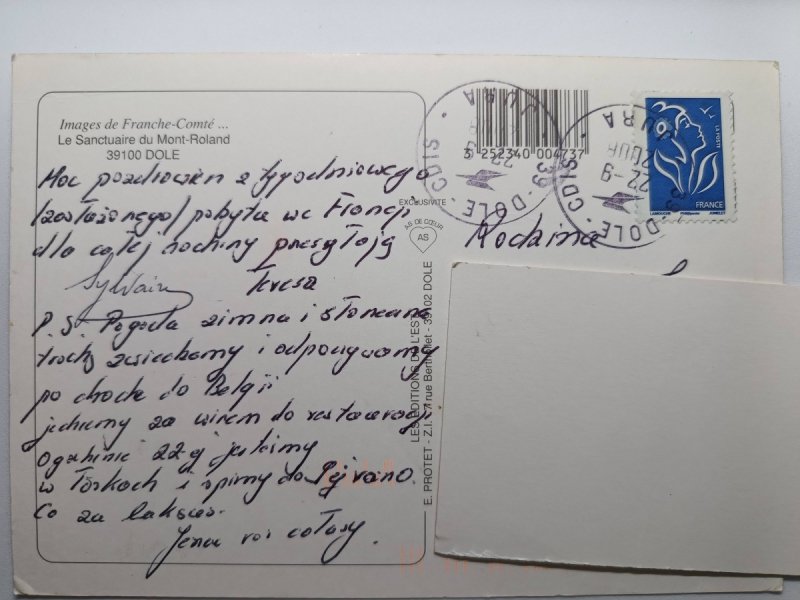 Images de Franche-Comté ...
Le Sanctuaire du Mont-Roland
39100 DOLE
Moc pozdrowień z tygodniowego
/zasłużonego/ pobytu we Francji
dla całej rodziny przesyłają
Sylvain Teresa
P.S. Pogoda zimna i słoneczna
trochę zwiedzamy i odpoczywamy
po chodzie do Belgii
jedziemy za winem do restauracji
o godzinie 22-g jesteśmy
w łóżkach i śpimy do
Co za luksus.
Jeszcze raz całusy.
EXCLUSIVITÉ
AS DE CŒUR
AS
LES EDITIONS DE L'EST
E. PROTET - Z.I. - 7 rue Berthollet - 39102 DOLE
3 252340 004737
39 - DOLE - CDIS
JURA
DOLE - CDIS
JURA
22-9
2006
LA POSTE
FRANCE
LAMOUCHE Phil@poste JUMELET
Rodzina